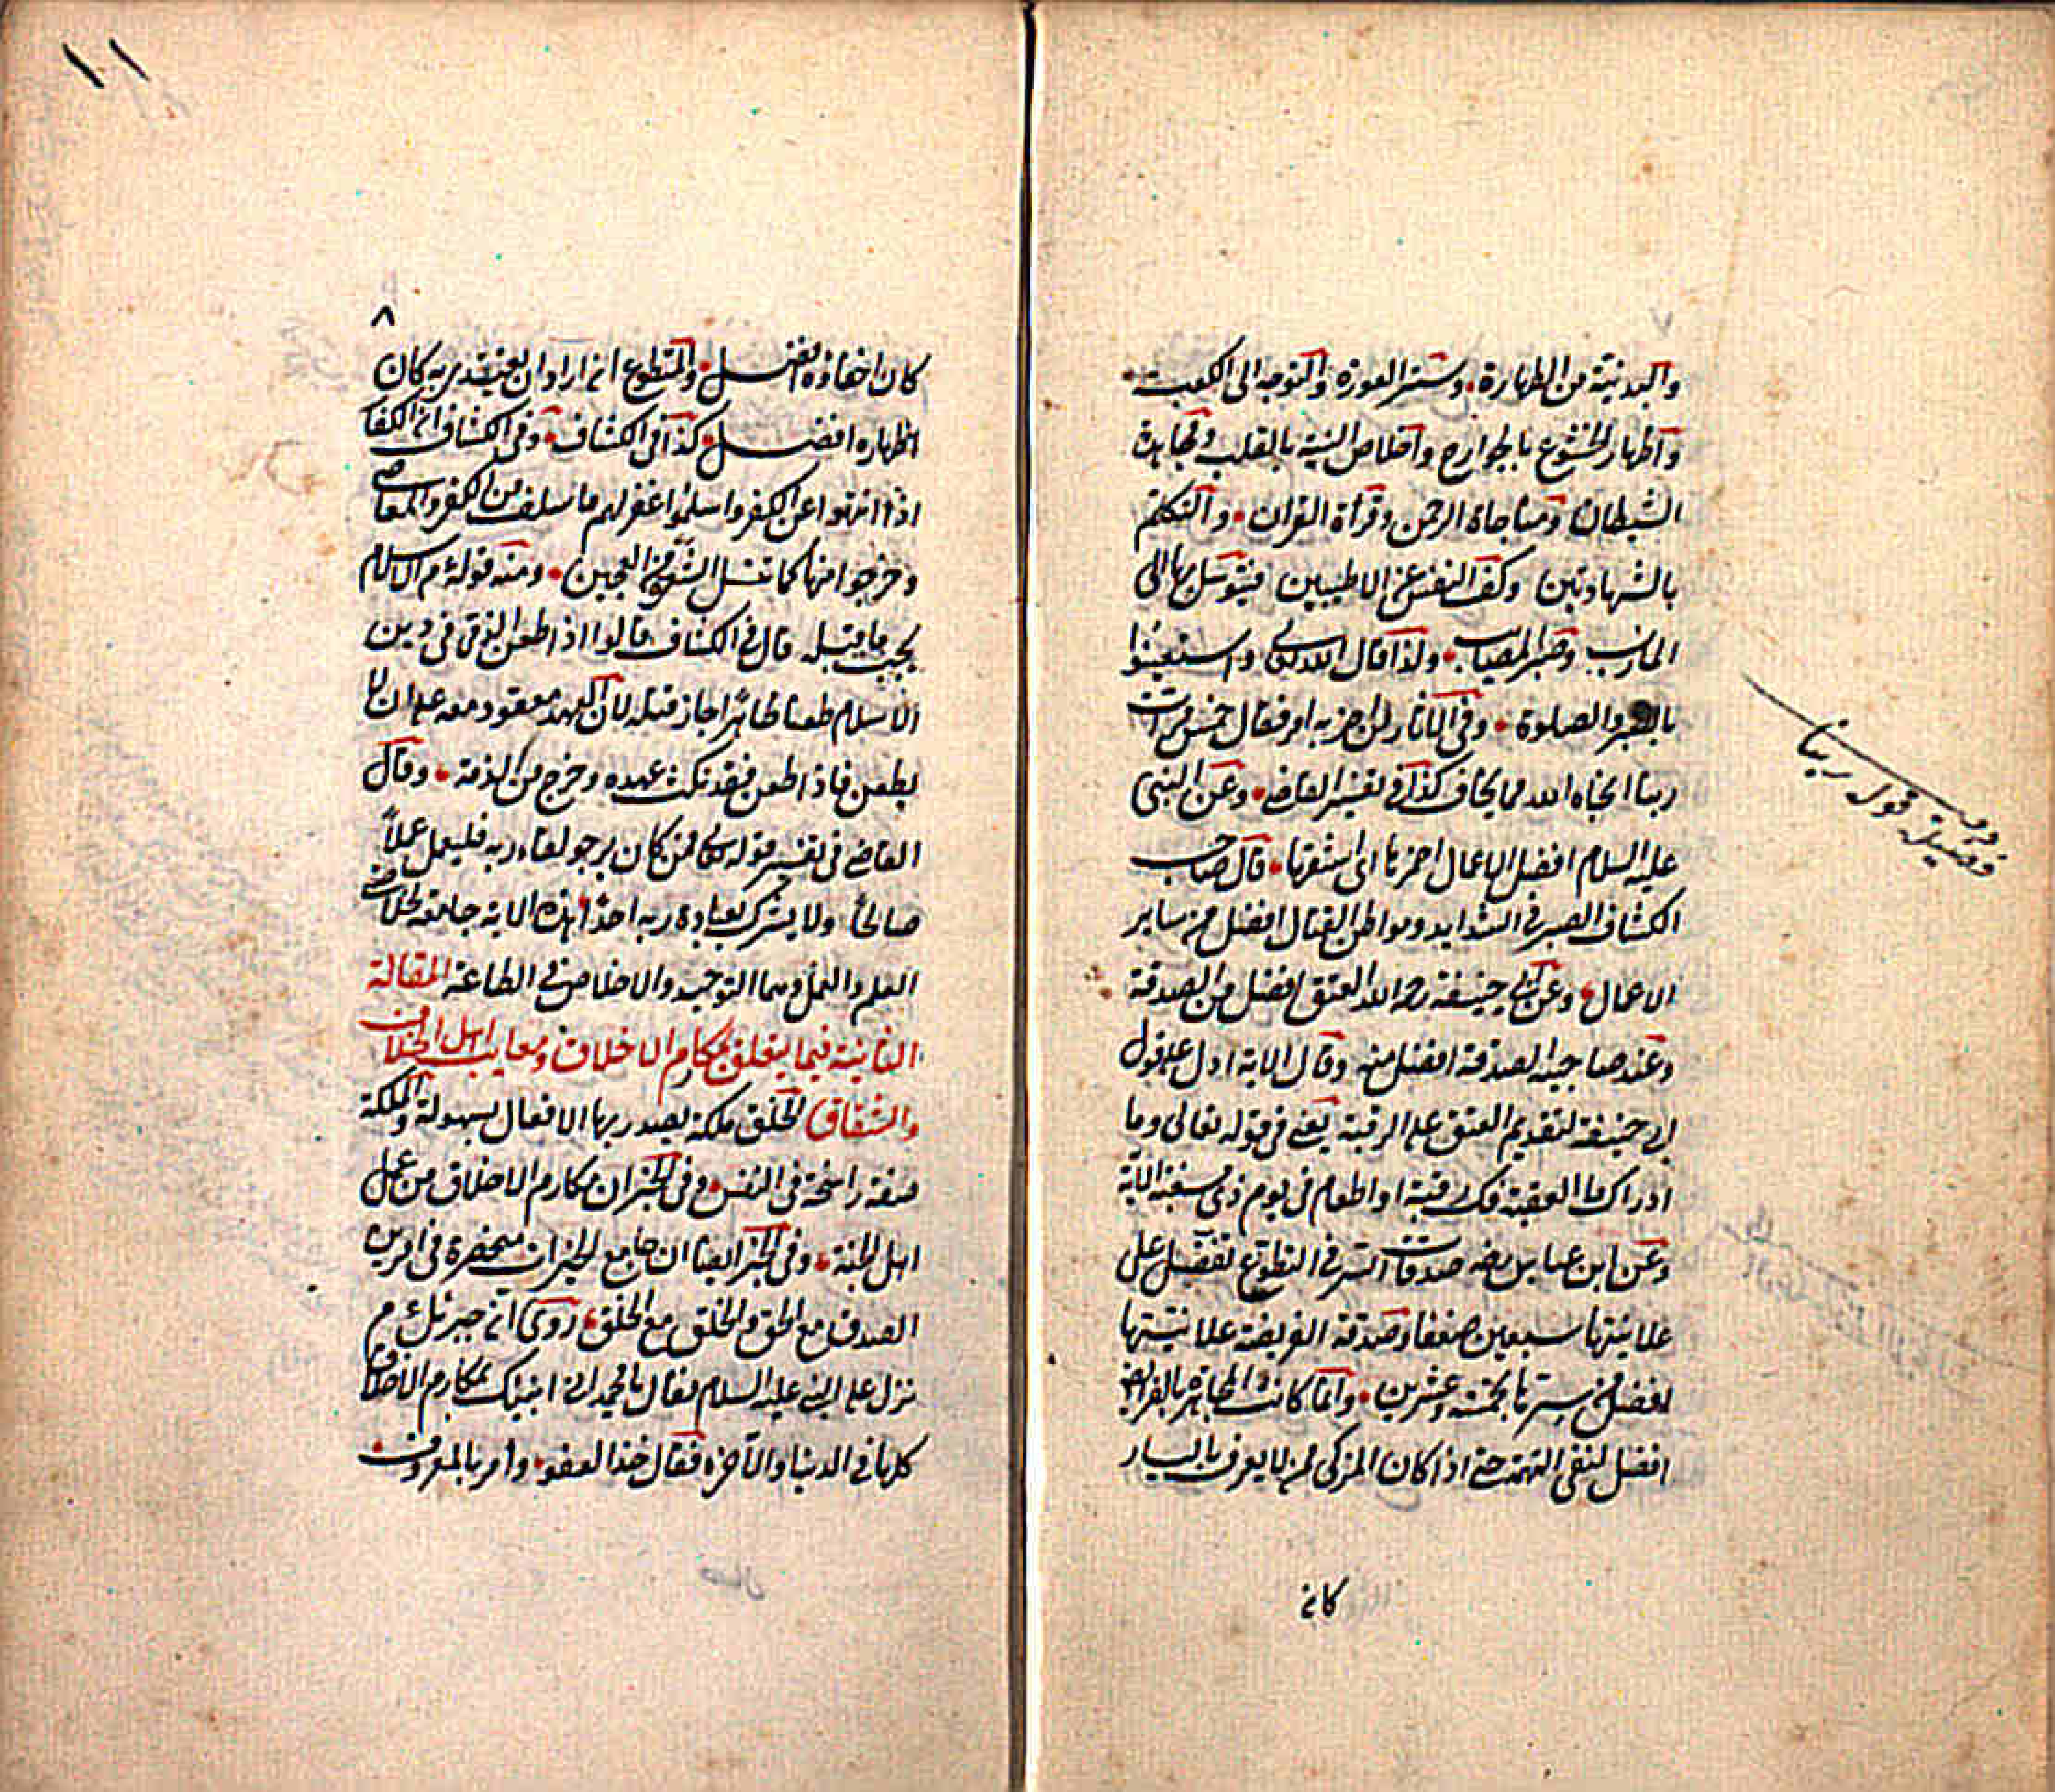 والبدنية من الطهارة وستر العورة والتوجه الى الكعبة
واظهار الخشوع بالجوارح واخلاص النية بالقلب ومجاهدة
الشيطان ومناجاة الرحمن وقرأة القران والتكلم
بالشهادتين وكف النفس عن الاطيبين فيتوسل بها الى
المارب وجبر المصايب ولذا قال الله تعالى واستعينوا
بالصبر والصلوة وفي الاثار من احزبه امر فقال خمس مرات
ربنا انجاه الله مما يخاف كذا في تفسير القاضي وعن النبي
عليه السلام افضل الاعمال احمزها اى اشقها قال صاحب
الكشاف الصبر في الشدايد ومواطن القتال افضل من ساير
الاعمال وعن ابي حنيفة رحمه الله العتق افضل من الصدقة
وعند صاحبيه الصدقة افضل منه وقال الاية ادل على قول
ابي حنيفة لتقديم العتق على الرقبة يعني في قوله تعالى وما
ادراك ما العقبة فك رقبة او اطعام في يوم ذي مسغبة الآية
وعن ابن عباس رضه صدقات السر في التطوع تفضل على
علانيتها سبعين ضعفا وصدقة الفريضة علانيتها
افضل من سرها بخمسة وعشرين وانما كانت المجاهرة بالفرايض
افضل لنفي التهمة حتى اذا كان المزكى ممن لا يعرف باليسار
كان
قول ربنا
١١
٨
كان اخفاؤه افضل والمتطوع ان اراد ان يقتدى به كان
اظهاره افضل كذا في الكشاف وفي الكشاف ان الكفار
اذا انتهوا عن الكفر واسلموا غفر لهم ما سلف من الكفر والمعاصي
وخرجوا منها كما تنسل الشعرة من العجين ومنه قوله ع م الاسلام
يجب ما قبله قال في الكشاف قالوا اذا طعن الذمي في دين
الاسلام طعنا ظاهرا جاز قتله لان العهد معقود معه على ان لا
يطعن فاذا طعن فقد نكث عهده وخرج من الذمة وقال
القاضي في تفسير قوله تعالى فمن كان يرجو لقاء ربه فليعمل عملاً
صالحاً ولا يشرك بعبادة ربه احداً هذه الاية جامعة لخلاصتي
العلم والعمل وهما التوحيد والاخلاص في الطاعة المقالة
الثانية فيما يتعلق بمكارم الاخلاق ومعايب اهل الخلاف
والشقاق الخلق ملكة يصدر بها الافعال بسهولة والملكة
صفة راسخة في النفس وفي الخبر ان مكارم الاخلاق من عمل
اهل الجنة وفي الخبر ايضا ان جامع الخيرات منحصرة في امرين
الصدق مع الحق والخلق مع الخلق روى ان جبرئل ع م
نزل على النبي عليه السلام فقال يا محمد اني اتيتك بمكارم الاخلاق
كلها في الدنيا والآخرة فقال خذ العفو وامر بالمعروف